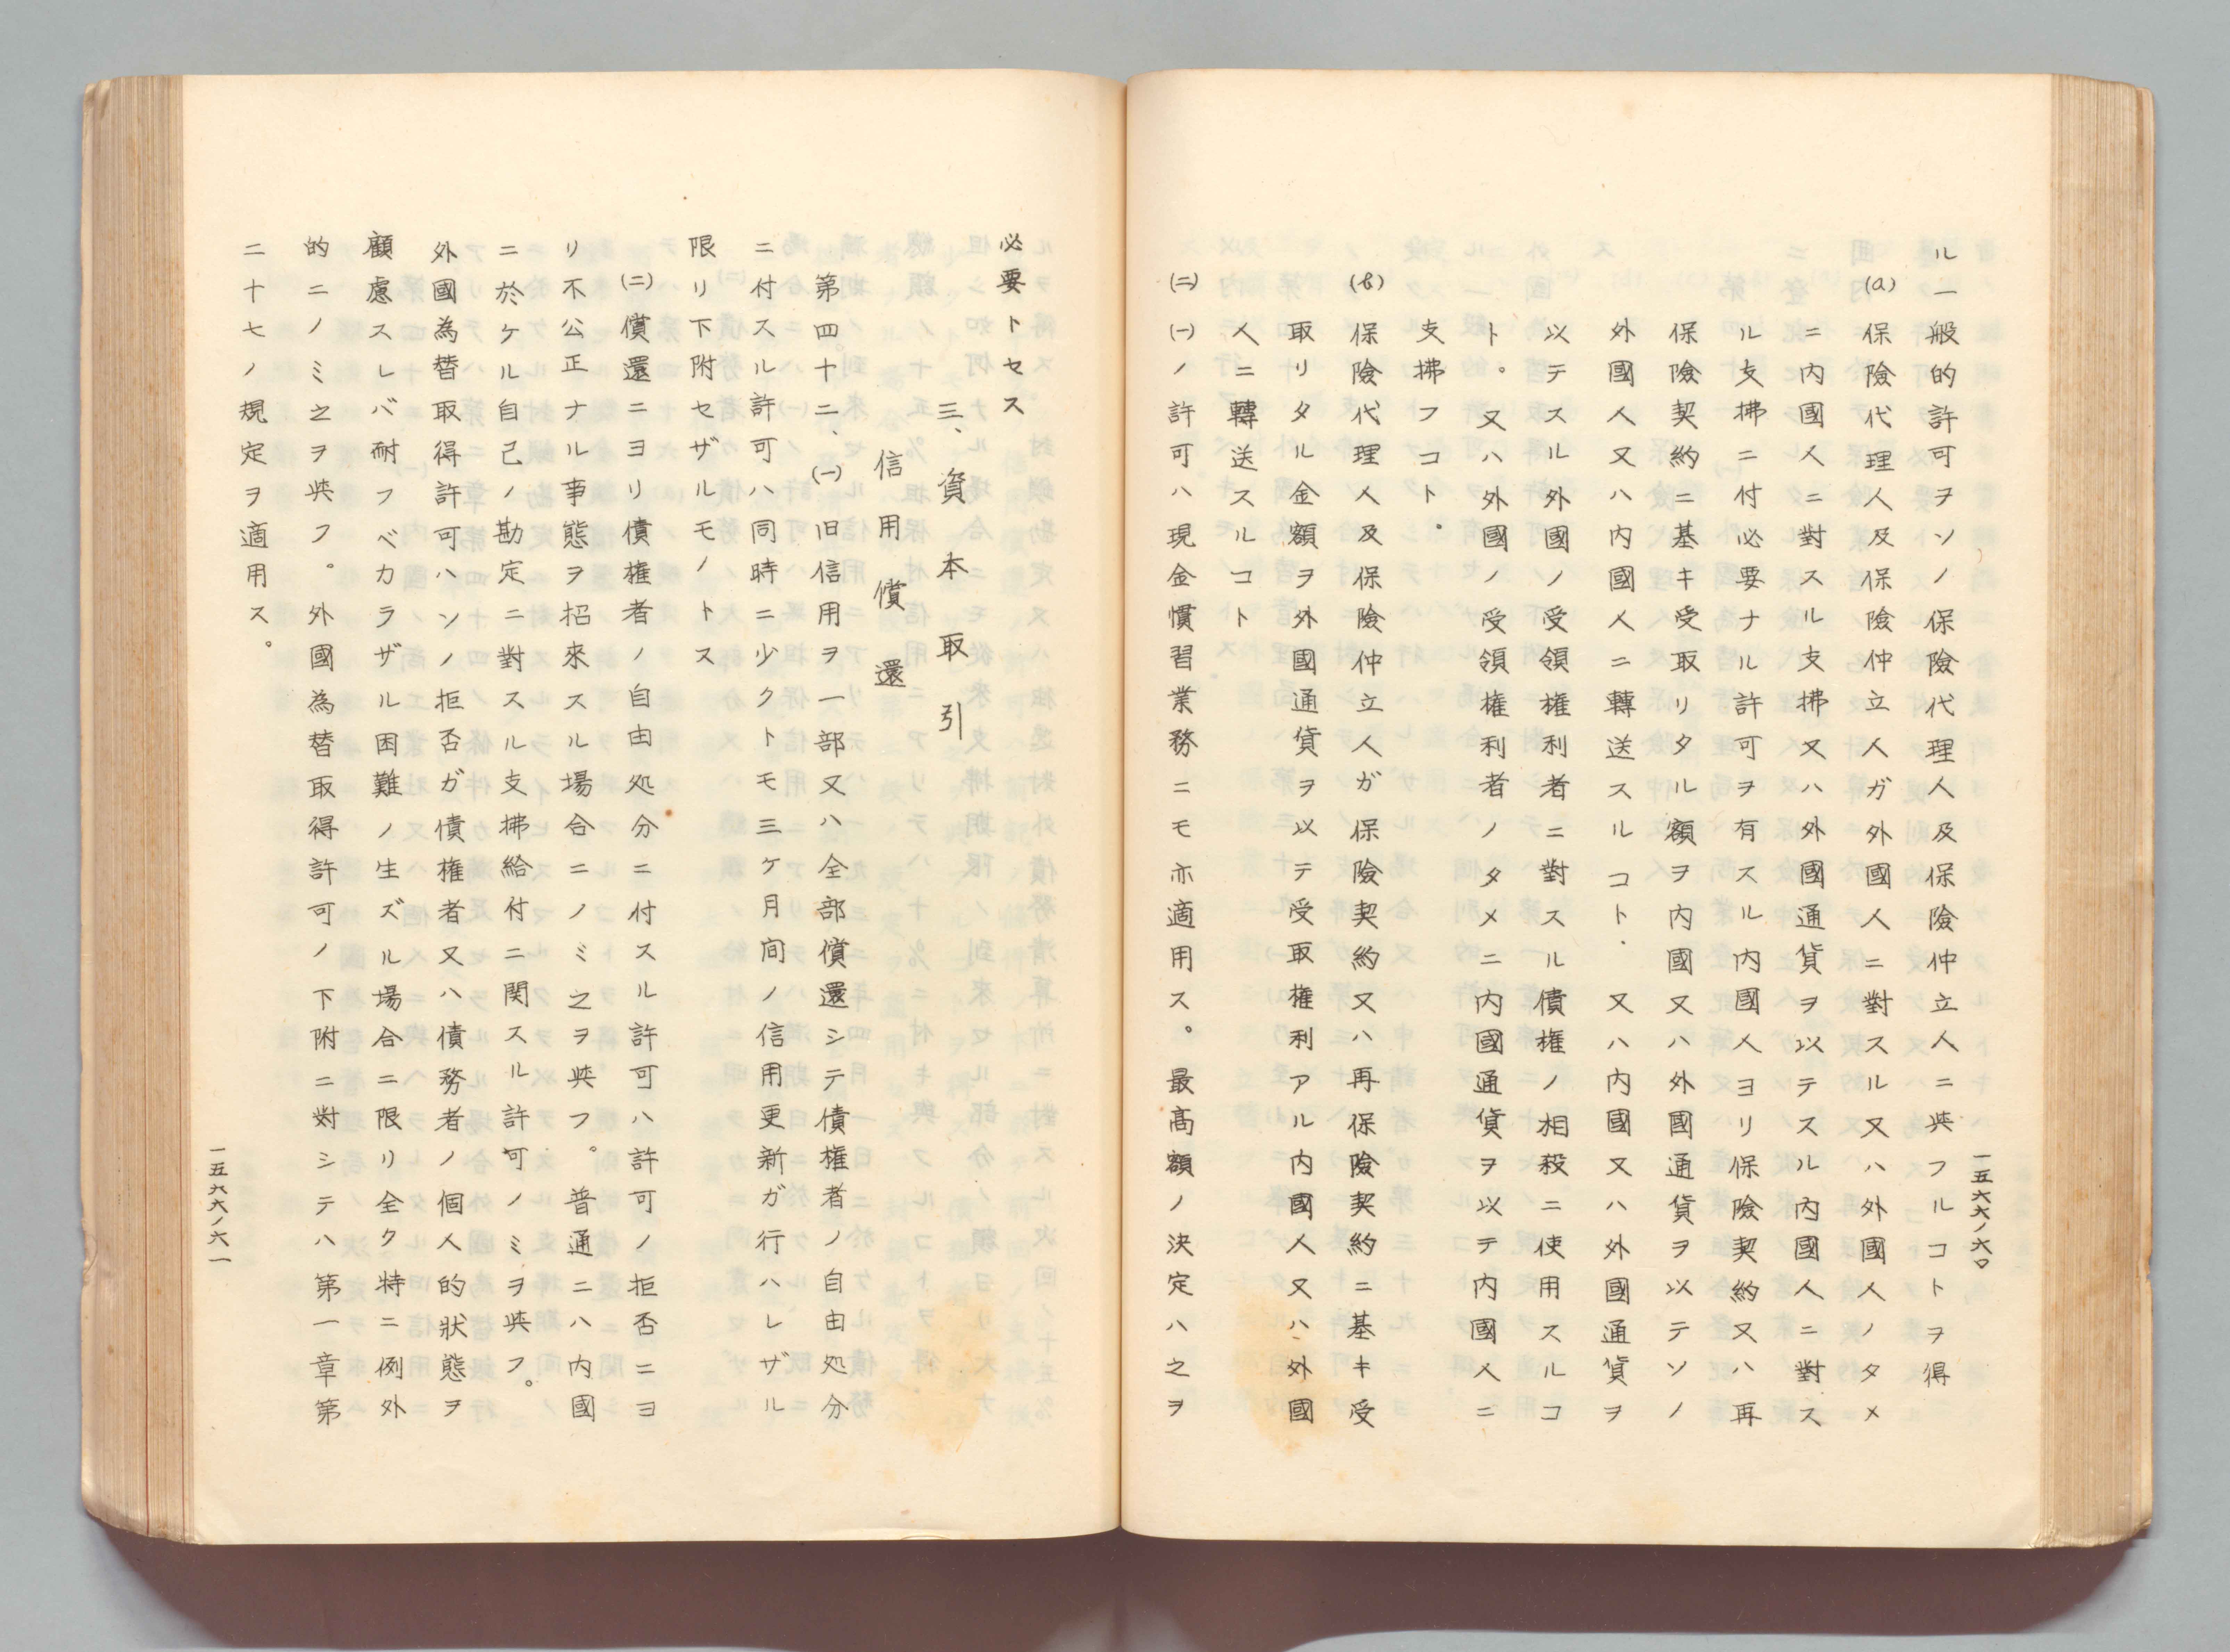 ル一般的許可ヲソノ保險代理人及保險仲立人ニ与フルコトヲ得
(a) 保險代理人及保險仲立人ガ外國人ニ對スル又ハ外國人ノタメ
ニ内國人ニ對スル支拂又ハ外國通貨ヲ以テスル内國人ニ對ス
ル支拂ニ付必要ナル許可ヲ有スル内國人ヨリ保險契約又ハ再
保險契約ニ基キ受取リタル額ヲ内國又ハ外國通貨ヲ以テソノ
外國人又ハ内國人ニ轉送スルコト、又ハ内國又ハ外國通貨ヲ
以テスル外國ノ受領権利者ニ對スル債権ノ相殺ニ使用スルコ
ト。又ハ外國ノ受領権利者ノタメニ内國通貨ヲ以テ内國人ニ
支拂フコト。
(b) 保險代理人及保險仲立人ガ保險契約又ハ再保險契約ニ基キ受
取リタル金額ヲ外國通貨ヲ以テ受取権利アル内國人又ハ外國
人ニ轉送スルコト
(二) (一)ノ許可ハ現金慣習業務ニモ亦適用ス。最高額ノ決定ハ之ヲ
一五六六ノ六〇
必要トセス
三、資本取引
信用償還
第四十二、(一)旧信用ヲ一部又ハ全部償還シテ債権者ノ自由処分
ニ付スル許可ハ同時ニ少クトモ三ケ月間ノ信用更新ガ行ハレザル
限リ下附セザルモノトス
(二)償還ニヨリ債権者ノ自由処分ニ付スル許可ハ許可ノ拒否ニヨ
リ不公正ナル事態ヲ招來スル場合ニノミ之ヲ与フ。普通ニハ内國
ニ於ケル自己ノ勘定ニ對スル支拂給付ニ関スル許可ノミヲ与フ。
外國為替取得許可ハソノ拒否ガ債権者又ハ債務者ノ個人的状態ヲ
顧慮スレバ耐フベカラザル困難ノ生ズル場合ニ限リ全ク特ニ例外
的ニノミ之ヲ与フ。外國為替取得許可ノ下附ニ対シテハ第一章第
二十七ノ規定ヲ適用ス。
一五六六ノ六一